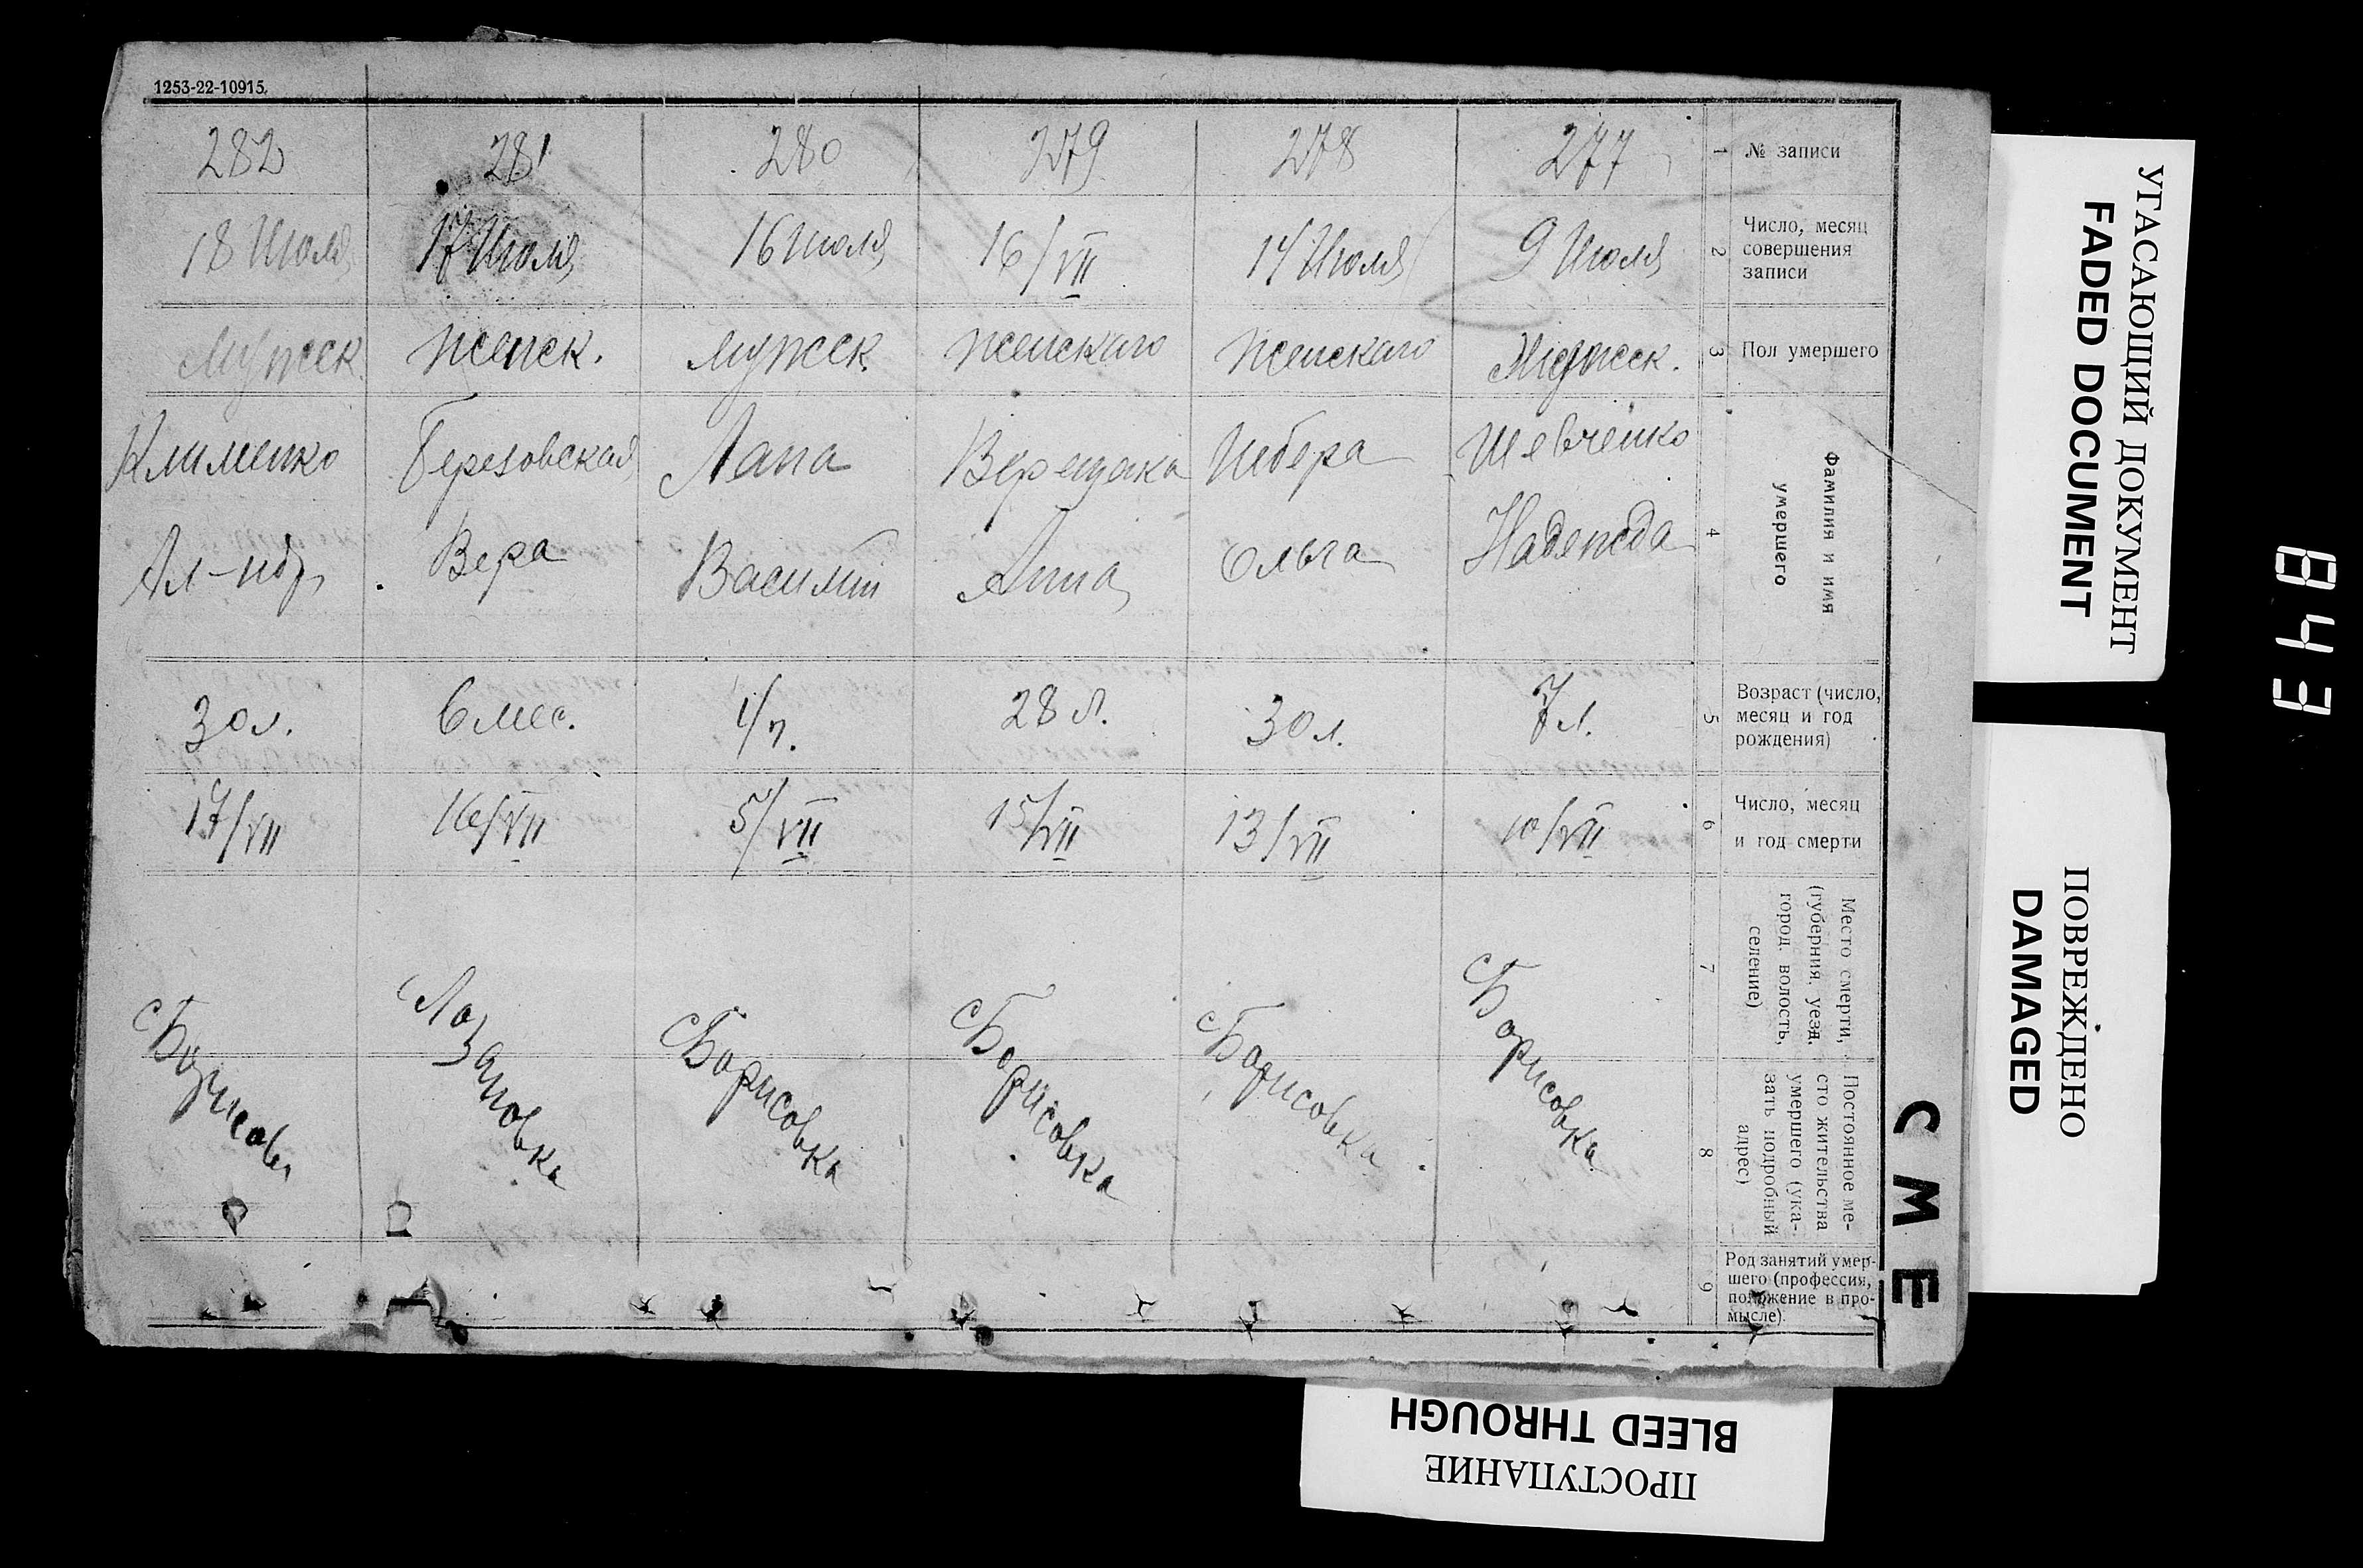 1253-22-10915.
282 281 280 279 278 277 1 № записи
18 Июля 17 Июля 16 Июля 16/VII 14 Июля 9 Июля 2 Число, месяц
совершения
записи
Мужск. женск. мужск. женскаго женскаго Мужск. 3 Пол умершего
Клименко Березовская Лапа Верещака Цебера Шевченко 4 Фамилия и имя
умершего
Ал-ндр Вера Василий Анна Ольга Надежда
30 л. 6 мес. 28 л. 30 л. 7 л. 5 Возраст (число,
месяц и год
рождения)
17/VII 16/VII 5/VII 15/VII 13/VII 10/VII 6 Число, месяц
и год смерти
с Борисовк с Борисовка с Борисовка с Борисовка с Борисовка 7 Место смерти,
(губерния, уезд,
город, волость,
селение)
8 Постоянное ме-
сто жительства
умершего (ука-
зать подробный
адрес)
9 Род занятий умер-
шего (профессия,
положение в про-
мысле).
СМЕ
УГАСАЮЩИЙ ДОКУМЕНТ
FADED DOCUMENT
ПОВРЕЖДЕНО
DAMAGED
ПРОСТУПАНИЕ
BLEED THROUGH
843